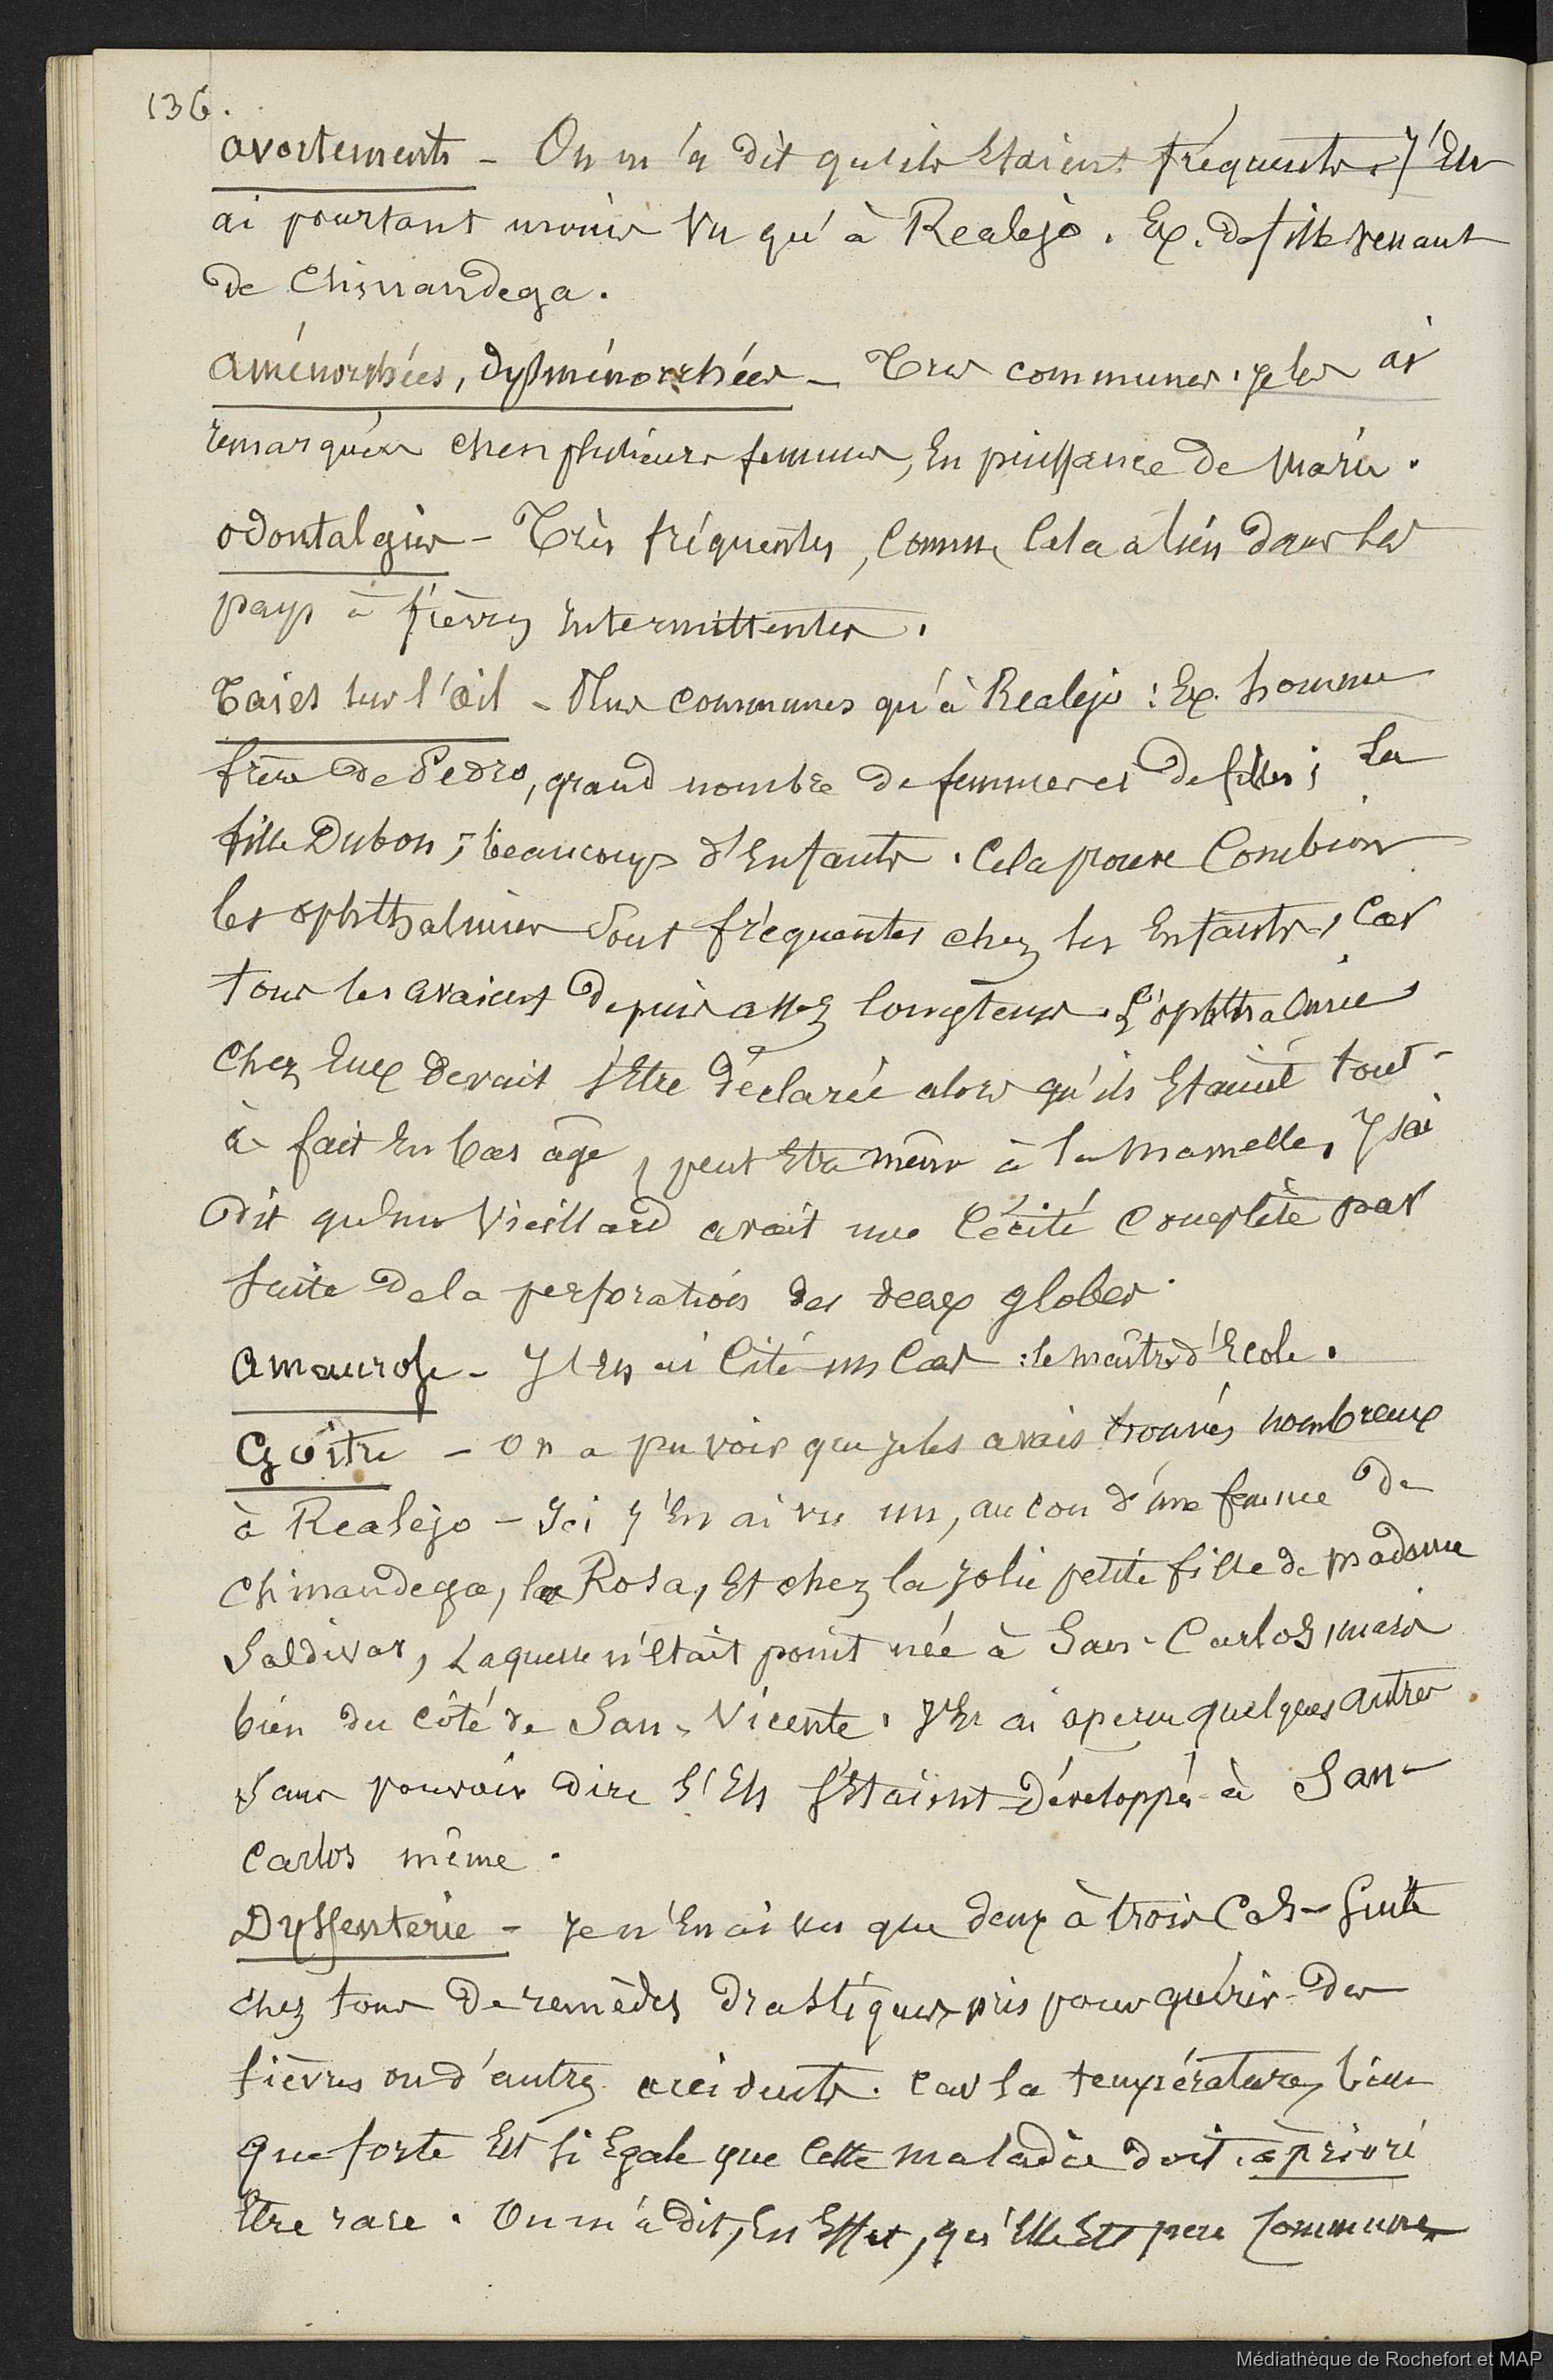 136.
avortements - On m'a dit qu'ils Etaient fréquents. J'En
ai pourtant moins vu qu'à Realejo. Ex. de fille venant
de Chinandega.
aménorrhées, dysménorrhées - Très communes. je les ai
remarquées chez plusieurs femmes, En puissance de maris.
odontalgies - Très fréquentes, comme Cela a lieu dans les
pays à fièvres Intermittentes.
Taies sur l'œil - Plus communes qu'à Realejo : Ex. homme
frère de Pedro, grand nombre de femmes et de filles ; La
fille Dubon ; beaucoup d'Enfants. Cela prouve Combien
les ophthalmies sont fréquentes chez les Enfants, Car
tous les avaient depuis assez longtems. L'ophthalmie
chez Eux devait s'Etre déclarée alors qu'ils Etaient tout-
à fait En bas âge, peut Etre même à la mamelle. J'ai
dit qu'un Vieillard avait une Cécité Complète par
suite de la perforation des deux globes.
Amaurose - J'En ai Cité un Cas : le maître d'Ecole.
Goître - On a pu voir que je les avais trouvés nombreux
à Realejo - Ici j'En ai vu un, au cou d'une femme de
Chinandega, la Rosa, Et chez la jolie petite fille de madame
Saldivar, Laquelle n'était point née à San-Carlos, mais
bien du côté de San-Vicente. J'En ai aperçu quelques autres
sans pouvoir dire s'Ils s'Etaient développés à San-
Carlos même.
Dyssenterie - Je n'En ai vu que deux à trois Cas - Suite
chez tous de remèdes drastiques pris pour guérir des
fièvres ou d'autres accidents. Car la température, bien
que forte Est si Egale que Cette maladie doit, à priori
Etre rare. On m'a dit, En Effet, qu'Elle Est peu Commune
Médiathèque de Rochefort et MAP